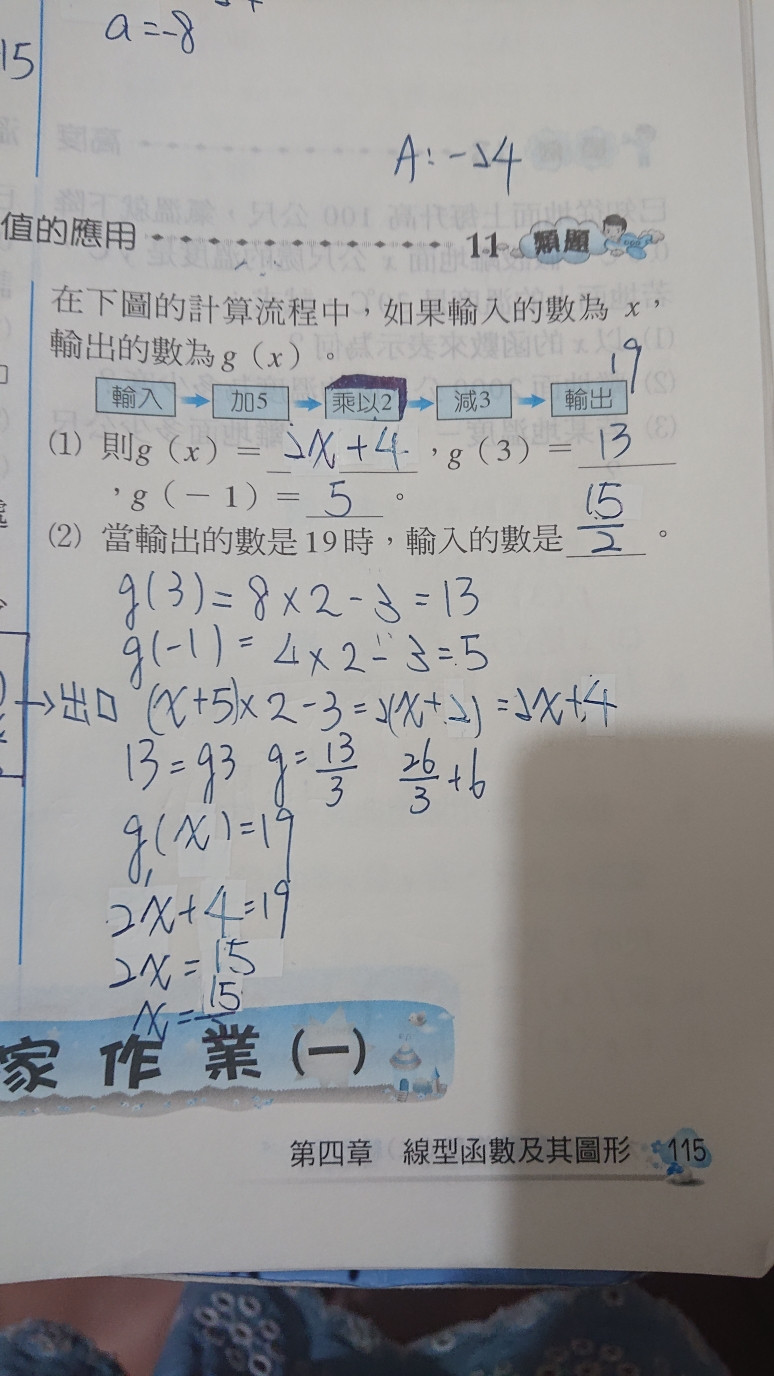 a=-8
15
A:-24
值的應用 11 類題
在下圖的計算流程中，如果輸入的數為 x，
輸出的數為g（x）。
19
輸入 加5 乘以2 減3 輸出
(1) 則g（x）＝2x+4，g（3）＝13
，g（－1）＝5。
(2) 當輸出的數是19時，輸入的數是15/2。
g(3)=8×2-3=13
g(-1)=4×2-3=5
→出口 (x+5)×2-3=2(x+2)=2x+4
13=g3 g=13/3 26/3+6
g(x)=19
2x+4=19
2x=15
x=15
家作業(一)
第四章 線型函數及其圖形 115